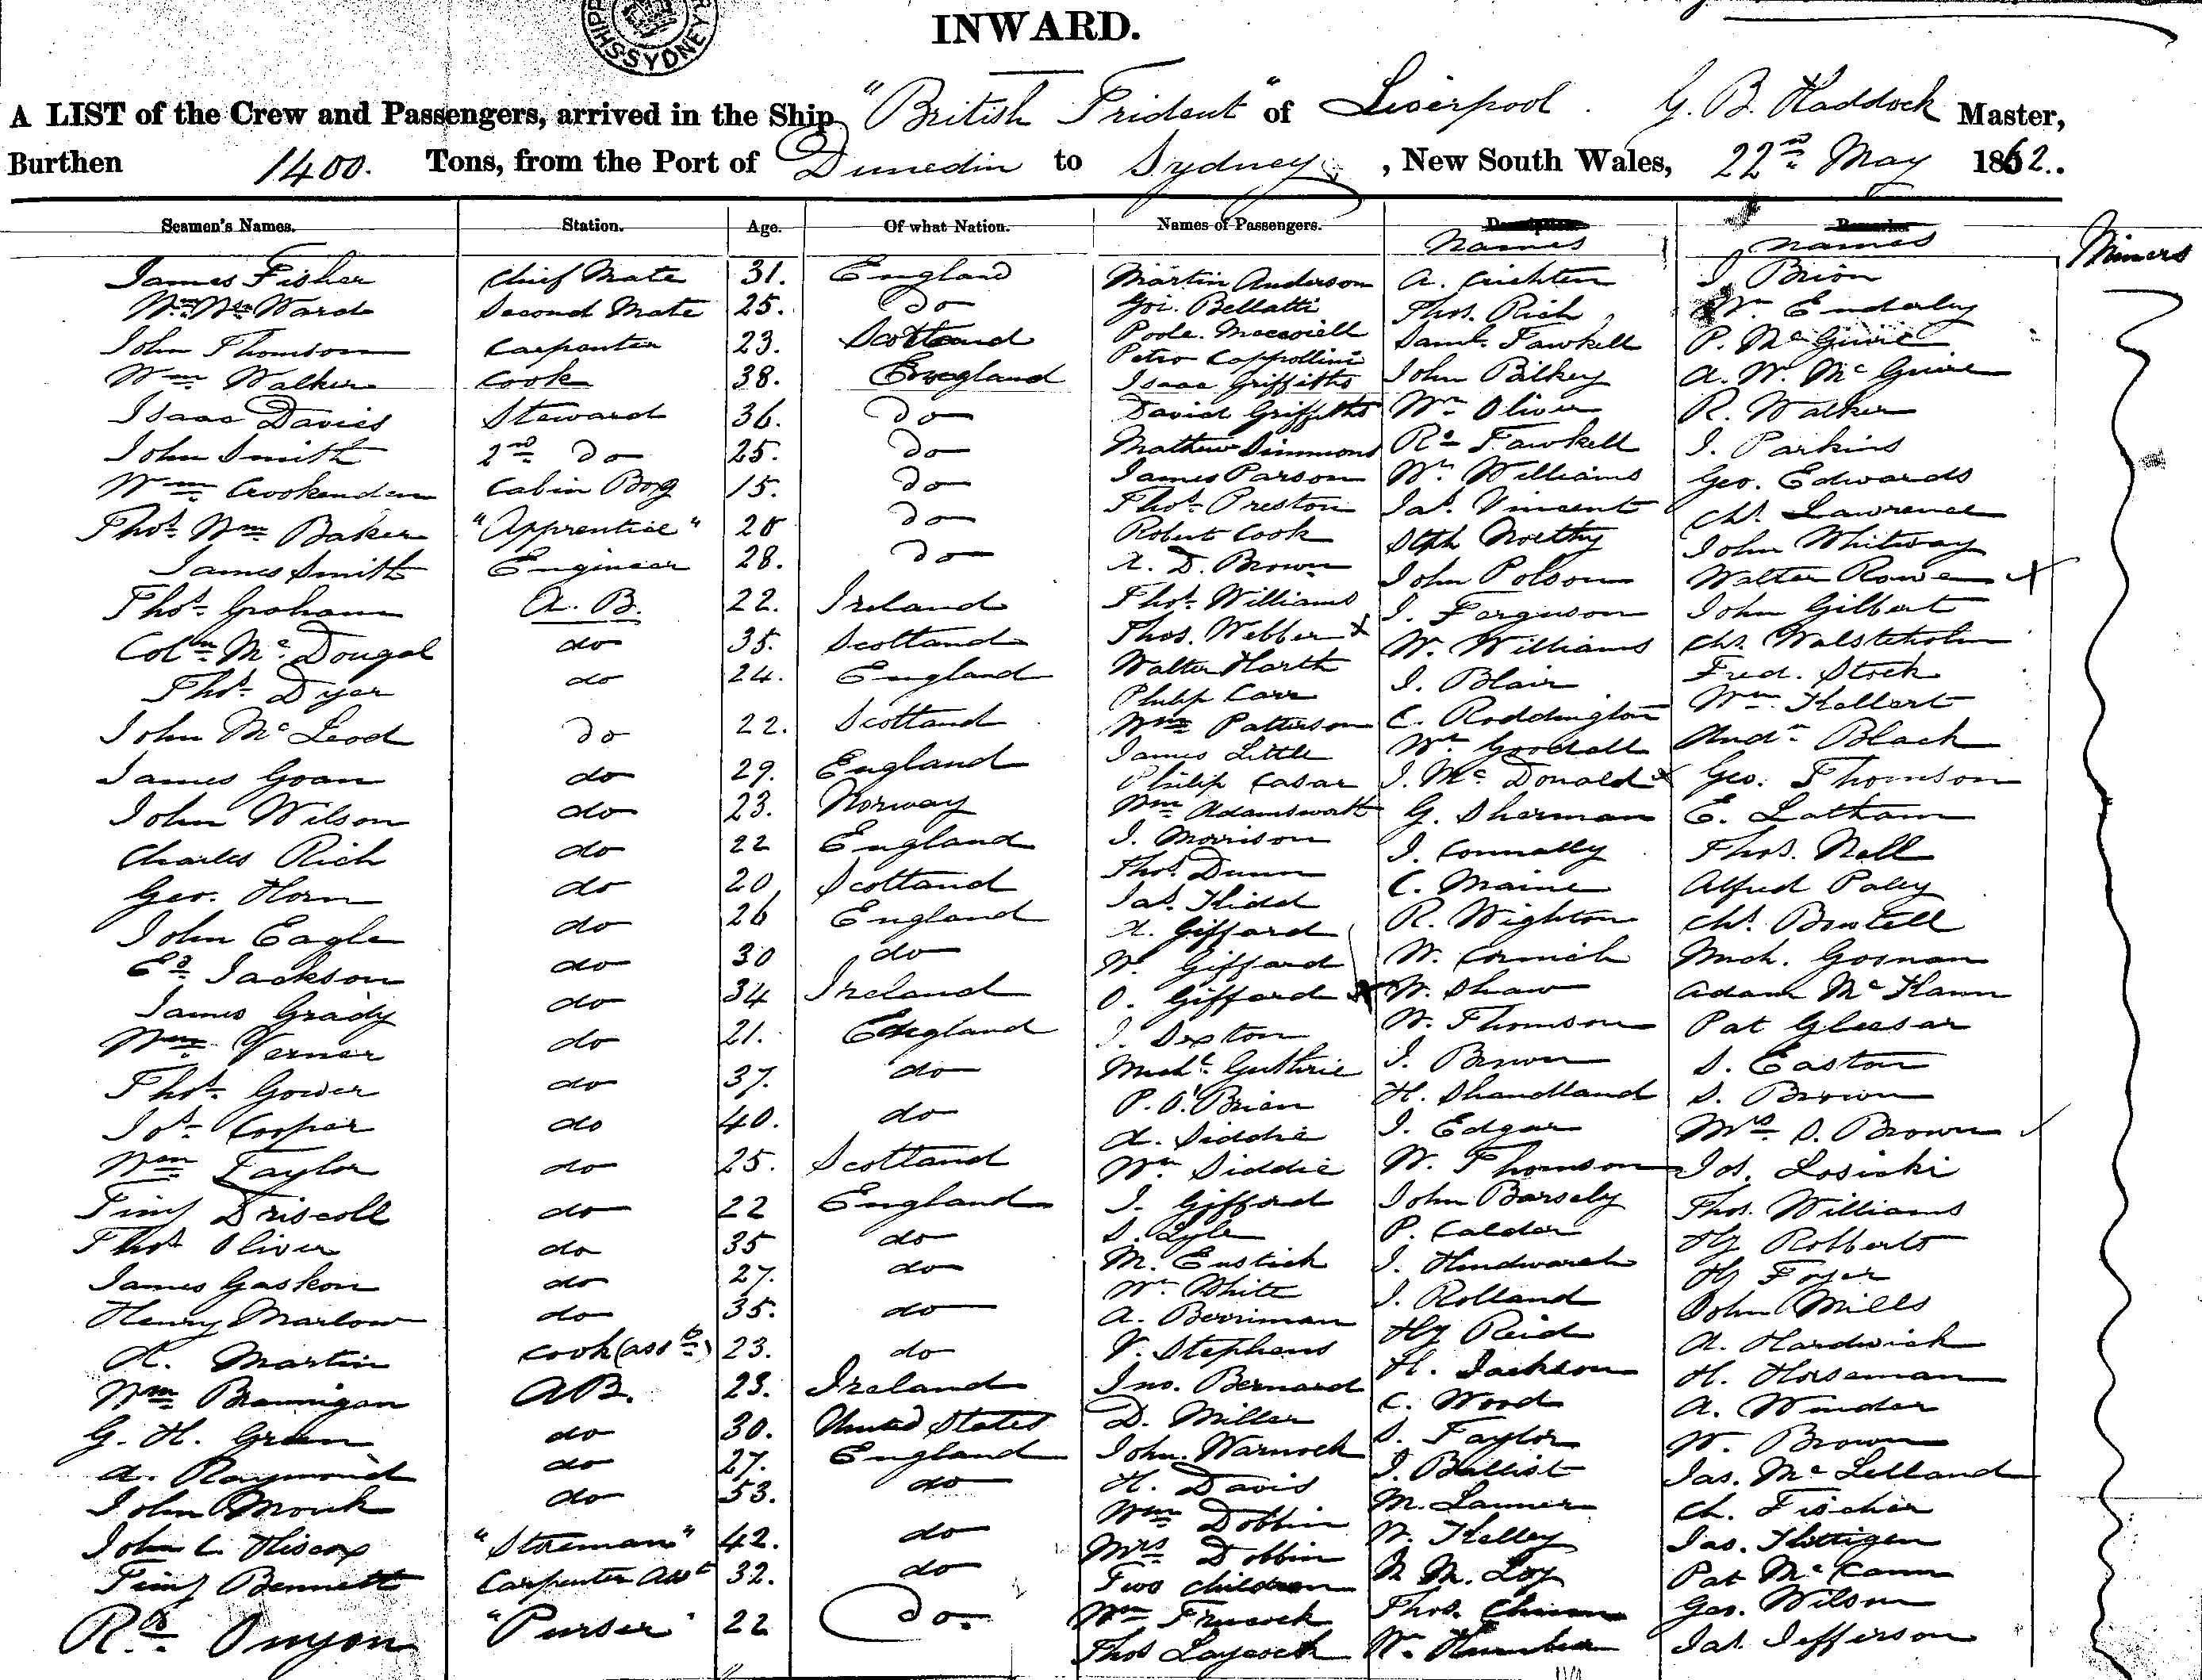 INWARD.
A LIST of the Crew and Passengers, arrived in the Ship "British Trident" of Liverpool. G. B. Haddock Master,
Burthen 1400. Tons, from the Port of Dunedin to Sydney, New South Wales, 22nd May 1862.
Seamen's Names. Station. Age. Of what Nation. Names of Passengers. Names Names Miners
James Fisher Chief Mate 31. England Martin Anderson A. Crichten J. Brion
Wm Ward Second Mate 25. Do Goi. Bellatti Thos. Rich Wm Enderby
John Thomson Carpenter 23. Scotland Poole. Saml. Fawkell P. McGuire
Petro Cappollini
Wm Walker Cook 38. England Isaac Griffiths John Pilkey A. W. McGuire
Isaac Davies Steward 36. Do David Griffiths Wm Oliver R. Walker
John Smith 2nd Do 25. Do Mathew Simmons Rd Fawkell J. Parkins
Wm Crookenden Cabin Boy 15. Do James Parson Wm Williams Geo. Edwards
Thos. Preston Jas. Vincent Chs. Lawrence
Thos. Wm Baker "Apprentice" 20 Do Robert Cook Stph Northy John Whitway
James Smith Engineer 28. Do A. D. Brown John Polson Walter Rowe
Thos. Graham A. B. 22. Ireland Thos. Williams J. Ferguson John Gilbert
Coln McDougal do 35. Scotland Thos. Webber x W. Williams Chs. Walsteholm
Thos. Dyer do 24. England Walter Harth J. Blair Fred. Stock
Philip Carr C. Roddington Wm Kellert
John McLeod Do 22. Scotland Wm Patterson Wm Goodall Andw Black
James Little
James Goan do 29. England Philip Casar J. McDonald x Geo. Thomson
John Wilson do 23. Norway Wm Adamsworth G. Sherman E. Latham
Charles Rich do 22 England J. Morrison J. Connally Thos. Nell
Geo. Horn do 20 Scotland Thos. Dunn C. Maine Alfred Paley
John Eagle do 26 England Jas. Kidd R. Wighton Chs. Bentell
A. Giffard
Ed Jackson do 30 do W. Giffard W. Cornich Mich. Gosnan
James Grady do 34 Ireland O. Giffard W. Shaw Adam McKann
Wm Verner do 21. England J. Sexton W. Thomson Pat Gleesar
Thos. Gower do 37. do Michl. Guthrie J. Brown S. Easton
Jos. Cooper do 40. do P. O'Brian H. Shandland S. Brown
A. Siddie J. Edgar Mrs S. Brown
Wm Taylor do 25. Scotland Wm Siddie W. Thomson Jos. Losicki
Timy Driscoll do 22 England J. Gifford John Barsely Thos. Williams
Thos. Oliver do 35 do S. Lyle P. Calder Hy Robberts
James Gaskon do 27. do M. Eustick J. Hindwarch Hy Foyer
Wm White
Henry Marlow do 35. do A. Berriman J. Rolland John Mills
A. Martin Cook (asst) 23. do V. Stephens Hy Reid A. Hardwick
Wm Brannigan A B. 23. Ireland Jno. Bernard H. Jackson H. Horseman
G. H. Green do 30. United States D. Miller C. Wood A. Winder
A. Raymond do 27. England John. Warnock S. Taylor W. Brown
John Monk do 53. do H. Davis J. Ballist Jas. McLelland
Wm Dobbin M. Lanner Ch. Fischer
John C. Hiscox "Storeman" 42. do Mrs Dobbin W. Kelley Jas. Hettigen
Timy Bennett Carpenter Asst 32. do Two children M. Loy Pat McCann
Rd Onyon "Purser" 22 Do. Wm Frucock Thos. Geo. Wilson
Thos Laycock Wm Jas. Jefferson